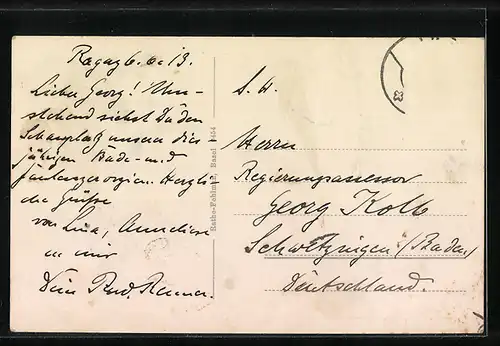 Ragaz 6. 6. 13.
Lieber Georg! Um-
stehend siehst Du den
Schauplatz unserer dies
jährigen Bade- und
Faulenzerorgien. Herzli
che Grüße
von Lina, Anneliese
u mir
Dein Rud.
Rathe-Fehlmann, Basel 3454
S. H.
Herrn
Regierungsassessor
Georg Kolb
Schwetzingen (Baden)
Deutschland.